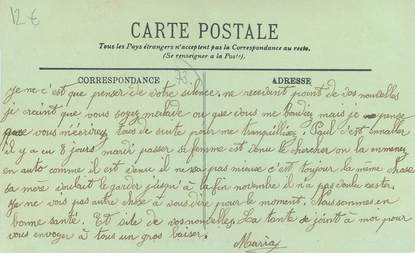 12 €
CARTE POSTALE
Tous les Pays étrangers n'acceptent pas la Correspondance au recto.
(Se renseigner à la Poste).
CORRESPONDANCE
ADRESSE
Je ne c'est que penser de votre silence. ne recevient point de vos nouvelles
je craint que vous soyez malade ou que vous me boudiez mais je pense
que vous m'écrirez tous de suite pour me tranquilliser. Paul c'est
il y a eu 8 jours mardi passer si femme est venu le chercher on la emmener
en auto comme il est venu il ne va pas mieux c'est toujour la même chose
sa mère voulait le garder jusqu'à la fin novembre il n'a pas voulu rester.
Je ne vois pas autre chose à vous dire pour le moment. Nous sommes en
bonne santé. Et site de vos nouvelles. La tante se joint à moi pour
vous envoyer à tous un gros baiser.
Maria